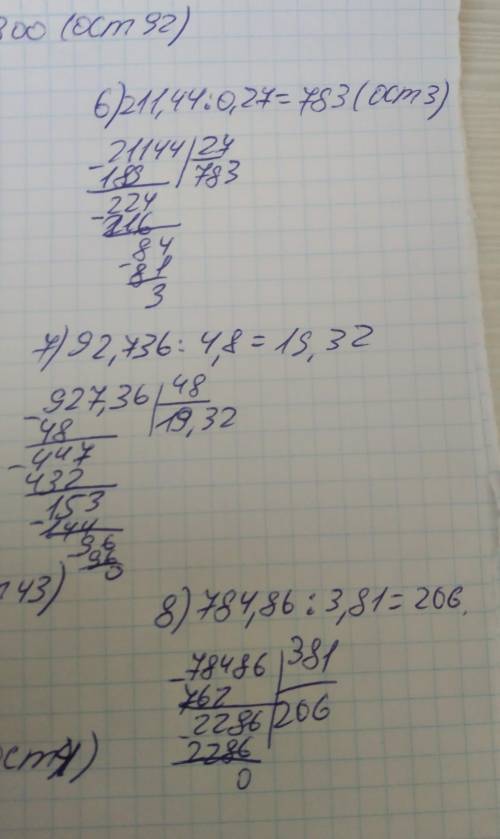 300 (ост 92)
6) 211,44 : 0,27 = 783 (ост 3)
- 21144 | 27
189 | 783
- 224
216
- 84
81
3
7) 92,736 : 4,8 = 19,32
- 927,36 | 48
48 | 19,32
- 447
432
- 153
144
- 96
96
0
43)
8) 784,86 : 3,81 = 206.
- 78486 | 381
762 | 206
- 2286
2286
0